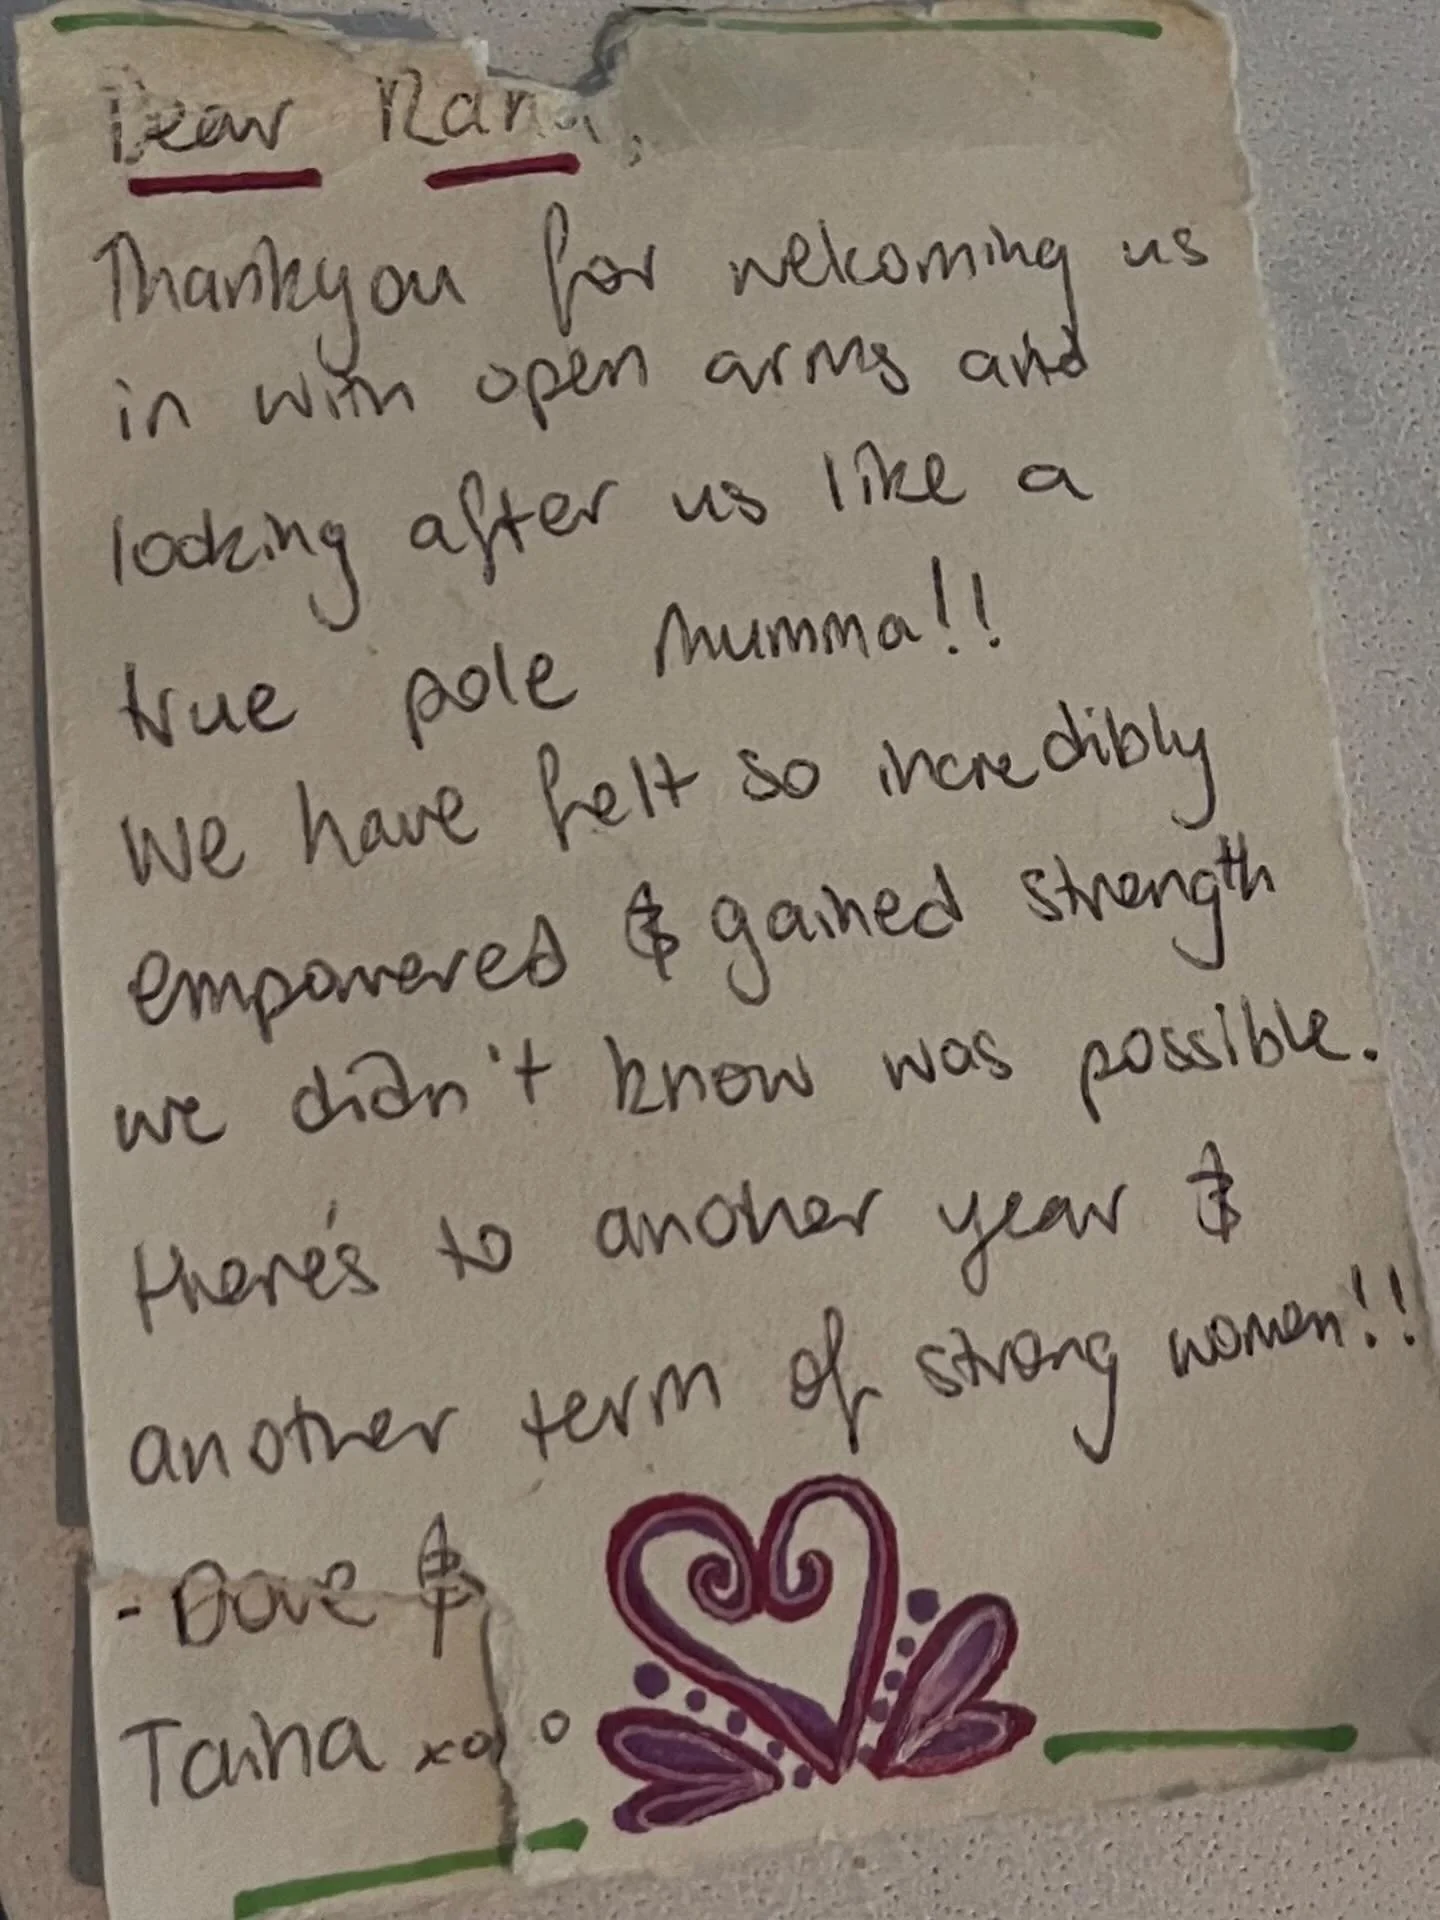 Dear Rana,
Thankyou for welcoming us
in with open arms and
looking after us like a
true pole mumma!!
We have felt so incredibly
empowered & gained strength
we didn't know was possible.
there's to another year &
another term of strong women!!
- Dove &
Taina xo o